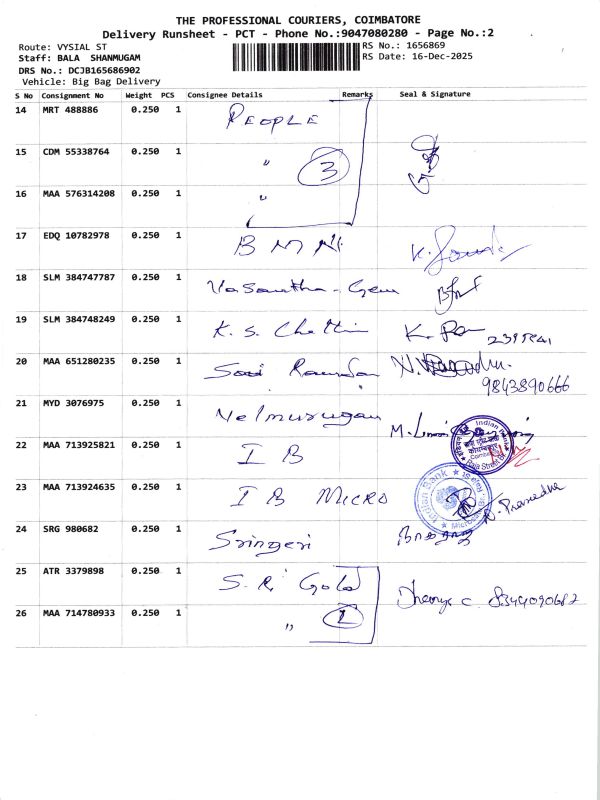 THE PROFESSIONAL COURIERS, COIMBATORE
Delivery Runsheet - PCT - Phone No.:9047080280 - Page No.:2
Route: VYSIAL ST
RS No.: 1656869
Staff: BALA SHANMUGAM
RS Date: 16-Dec-2025
DRS No.: DCJB165686902
Vehicle: Big Bag Delivery
S No Consignment No Weight PCS Consignee Details Remarks Seal & Signature
14 MRT 488886 0.250 1 PEOPLE
15 CDM 55338764 0.250 1 " 3
16 MAA 576314208 0.250 1 "
17 EDQ 10782978 0.250 1 B M N
18 SLM 384747787 0.250 1 Vasantha - Gem
19 SLM 384748249 0.250 1 K. S. Chettiar K.
20 MAA 651280235 0.250 1 9843890666
21 MYD 3076975 0.250 1 Velmurugan
22 MAA 713925821 0.250 1 I B
23 MAA 713924635 0.250 1 I B MICRO
Indian Bank
24 SRG 980682 0.250 1 Sringeri
25 ATR 3379898 0.250 1 S. R. Gold
26 MAA 714780933 0.250 1 " 8344090682